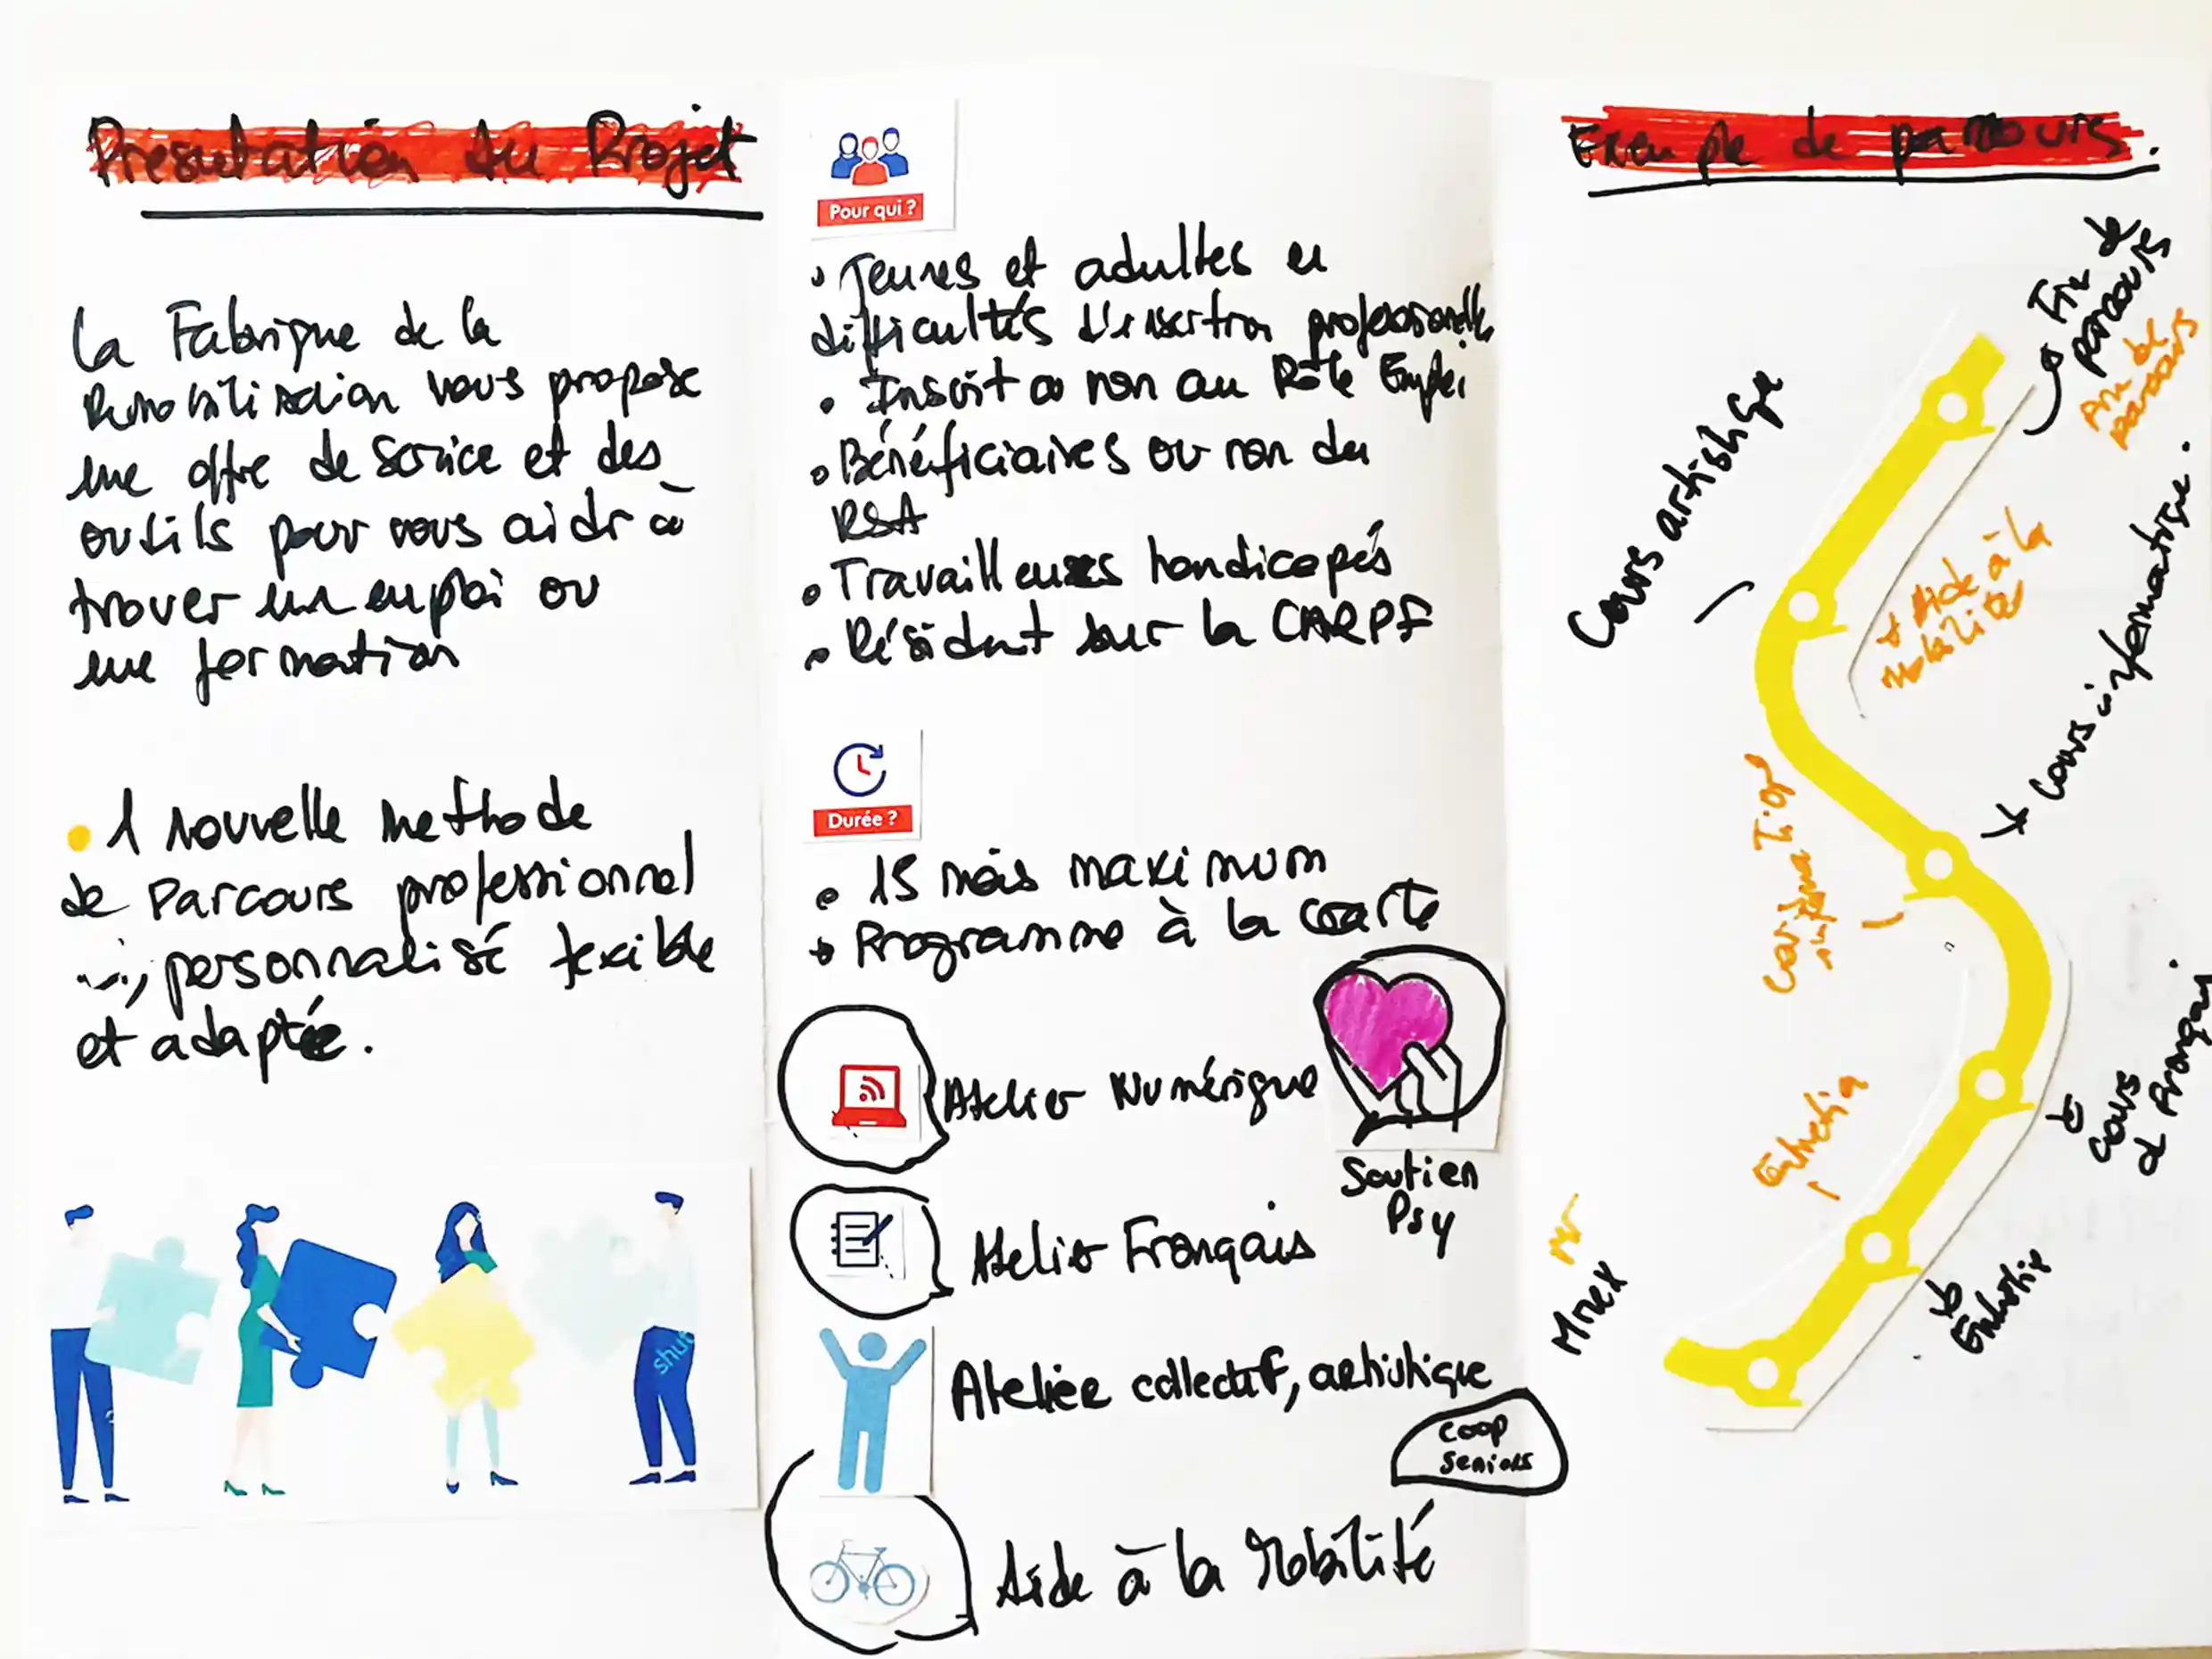 Présentation du Projet
La Fabrique de la
Remobilisation vous propose
une offre de service et des
outils pour vous aider à
trouver un emploi ou
une formation
1 nouvelle methode
de Parcours professionnel
personnalisé flexible
et adaptée.
shut
Pour qui ?
Jeunes et adultes en
difficultés d'insertion professionnelle
Inscrit ou non au Pôle Emploi
Bénéficiaires ou non du
RSA
Travailleurs handicapés
Résident sur la CARPF
Durée ?
15 mois maximum
Programme à la carte
Atelier Numérique
Soutien
Psy
Atelier Français
Atelier collectif, artistique
Coop
Seniors
Aide à la Mobilité
Exemple de parcours.
Fin de
parcours
Fin de
parcours
Cours artistique
+ Aide à la
Mobilité
Cours informatique.
Cours
de Français
Entretien
Entretien